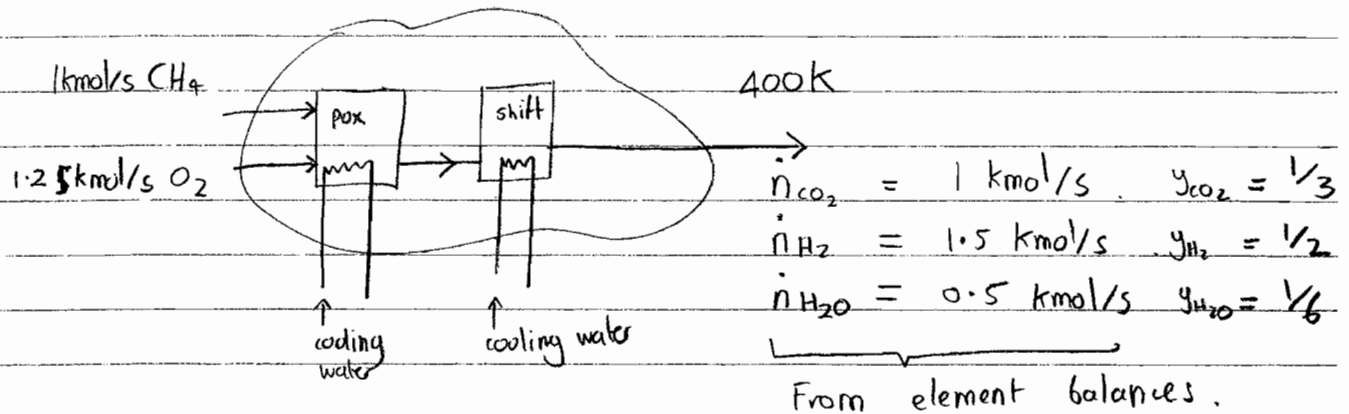 1kmol/s CH₄
400K
pox
shift
1.25kmol/s O₂
ṅCO₂ = 1 kmol/s. yCO₂ = 1/3
ṅH₂ = 1.5 kmol/s yH₂ = 1/2
ṅH₂O = 0.5 kmol/s yH₂O = 1/6
cooling water
cooling water
From element balances.